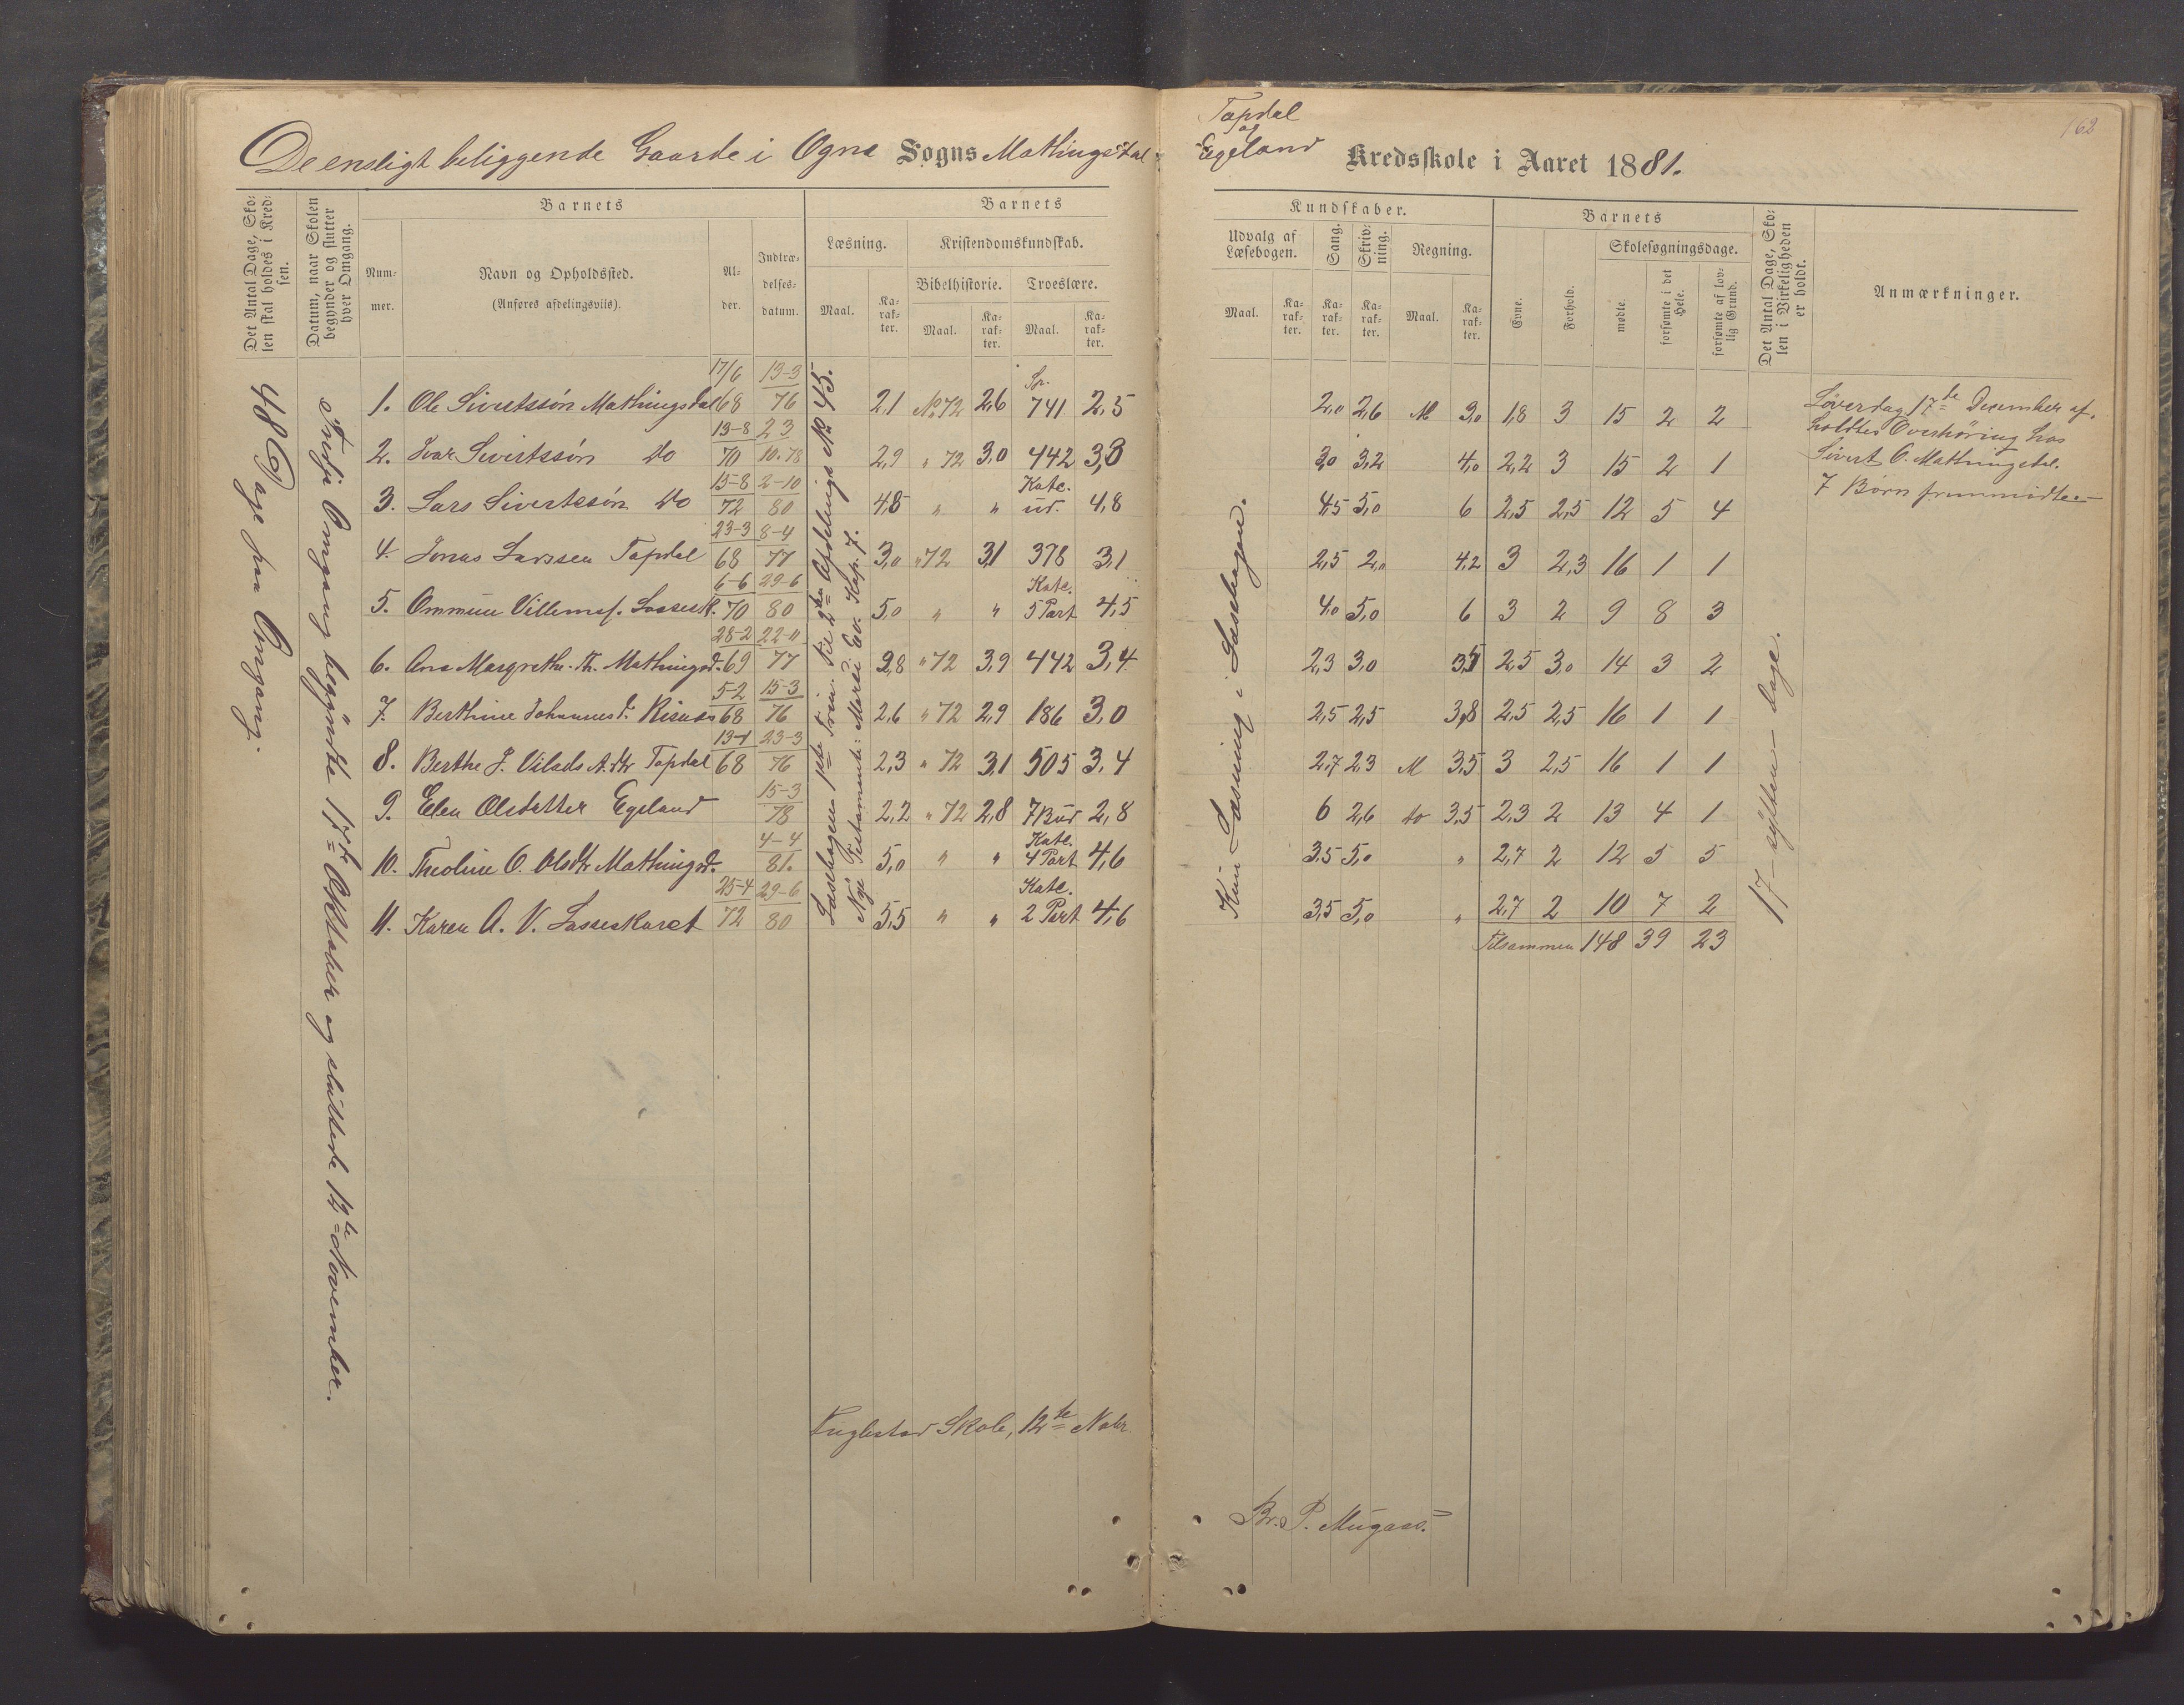 De ensligt beliggende Gaarde i Ogna Sogns Mathingsdal
Tapdal
og
Egeland Kredsskole i Aaret 1881.
162
Det Antal Dage, Sko-
len skal holdes i Kred-
sen.
Datum, naar Skolen
begynder og slutter
hver Omgang.
Barnets
Num-
mer.
Navn og Opholdssted.
(Anføres afdelingsviis).
Al-
der.
Indtræ-
delses-
datum.
Barnets
Læsning.
Maal.
Ka-
rak-
ter.
Kristendomskundskab.
Bibelhistorie.
Maal.
Ka-
rak-
ter.
Troeslære.
Maal.
Ka-
rak-
ter.
Kundskaber.
Udvalg af
Læsebogen.
Maal.
Ka-
rak-
ter.
Sang.
Ka-
rak-
ter.
Skriv-
ning.
Ka-
rak-
ter.
Regning.
Maal.
Ka-
rak-
ter.
Barnets
Evne.
Forhold.
Skolesøgningsdage.
mødte.
forsømte i det
Hele.
forsømte af lov-
lig Grund.
Det Antal Dage, Sko-
len i Virkeligheden
er holdt.
Anmærkninger.
48 Dage paa Omgang.
Tredje Omgang begyndte 17de Oktober og sluttede 12te November.
Læsebogens 1ste Trin. Til 2den Afdelings No 45.
Nye Testamente: Marci Ev. Kap. 7.
Kun Læsning i Læsebogen.
17 – sytten – dage.
1. Ole Sivertssøn Mathingsdal 17/6 68 13-3 76 2,1 No 72 2,6 Sp. 741 2,5 2,0 2,6 M 3,0 1,8 3 15 2 2
2. Ivar Sivertssøn do 13-8 70 23 10.78 2,9 " 72 3,0 442 3,3 3,0 3,2 4,0 2,2 3 15 2 1
3. Lars Sivertssøn do 15-8 72 2-10 80 4,8 " " Kate. ud. 4,8 4,5 5,0 6 2,5 2,5 12 5 4
4. Jonas Larssen Tapdal 23-3 68 8-4 77 3,0 " 72 3,1 378 3,1 2,5 2,0 4,2 3 2,3 16 1 1
5. Ommund Villemsf. Lassesk. 6-6 70 29-6 80 5,0 " " Kate. 5 Part 4,5 4,0 5,0 6 3 2 9 8 3
6. Ana Margrethe Th. Mathingsd. 28-2 69 77 2,8 " 72 3,9 442 3,4 2,3 3,0 2,5 3,0 14 3 2
7. Berthine Johannesd. 5-2 68 15-3 76 2,6 " 72 2,9 186 3,0 2,5 2,5 3,8 2,5 2,5 16 1 1
8. Berthe J. Vilads A. dtr Tapdal 13-1 68 23-3 76 2,3 " 72 3,1 505 3,4 2,7 2,3 M 3,5 3 2,5 16 1 1
9. Elen Olsdatter Egeland 15-3 78 2,2 " 72 2,8 7 Bud 2,8 6 2,6 do 3,5 2,3 2 13 4 1
10. Theoline O. Olsdtr Mathingsd. 4-4 81. 5,0 " " Kate. 4 Part 4,6 3,5 5,0 " 2,7 2 12 5 5
11. Karen A. V. Lasseskaret 25-4 72 29-6 80 5,5 " " Kate. 2 Part 4,6 3,5 5,0 " 2,7 2 10 7 2
Tilsammen 148 39 23
Løverdag 17de December af-
holdtes Overhøring hos
Sivert O. Mathingsdal.
7 Børn fremmødte.–
Fuglestad Skole, 12te Nobr.
Br. P. Mugaas.